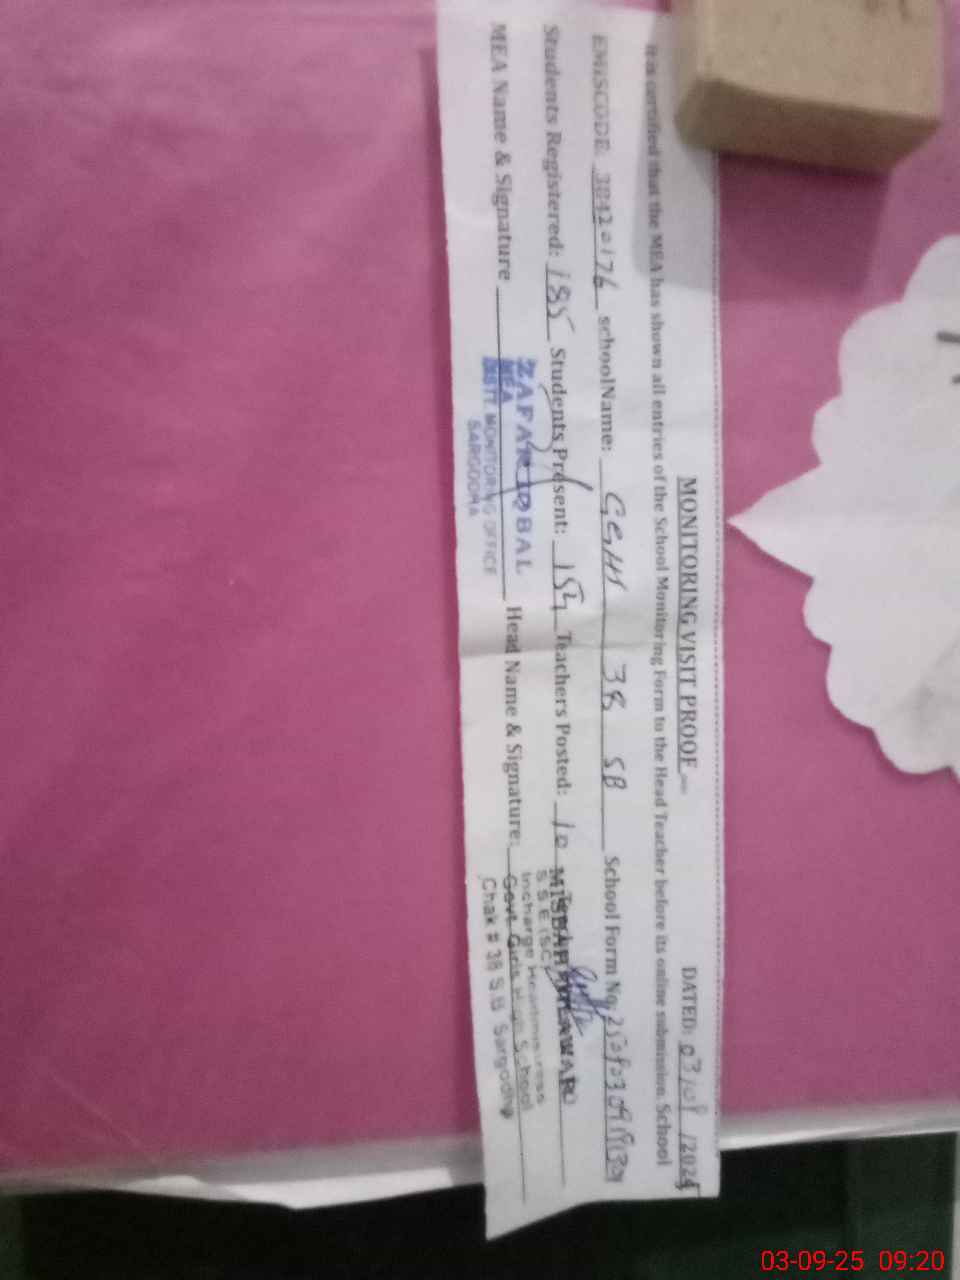 MONITORING VISIT PROOF
DATED: 03/09/2024
It is certified that the MEA has shown all entries of the School Monitoring Form to the Head Teacher before its online submission. School
EMISCODE 38420176 schoolName: GGHS 38 SB School Form No.
Students Registered: 185 Students Present: 154 Teachers Posted: 10
MEA Name & Signature Head Name & Signature:
ZAFAR IQBAL
MEA
DISTT MONITORING OFFICE
SARGODHA
MISBAH
S S E (SC)
Incharge Headmistress
Govt. Girls High School
Chak # 38 S.B Sargodha
03-09-25 09:20